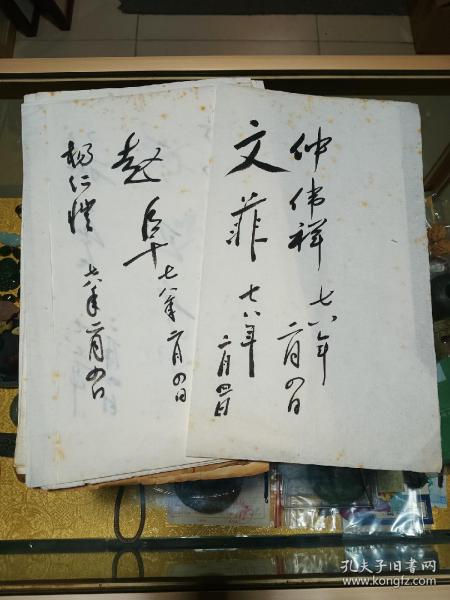 仲伟祥 七八年
二月四日
文菲 七八年
二月四日
赵阜 七八年二月四日
杨仁恺 七八年二月四日
孔夫子旧书网
www.kongfz.com